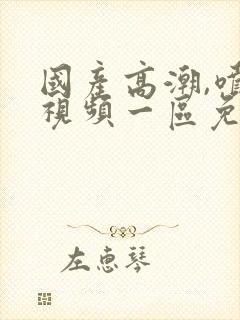 國產高潮,噴
視頻一區免
左惠琴